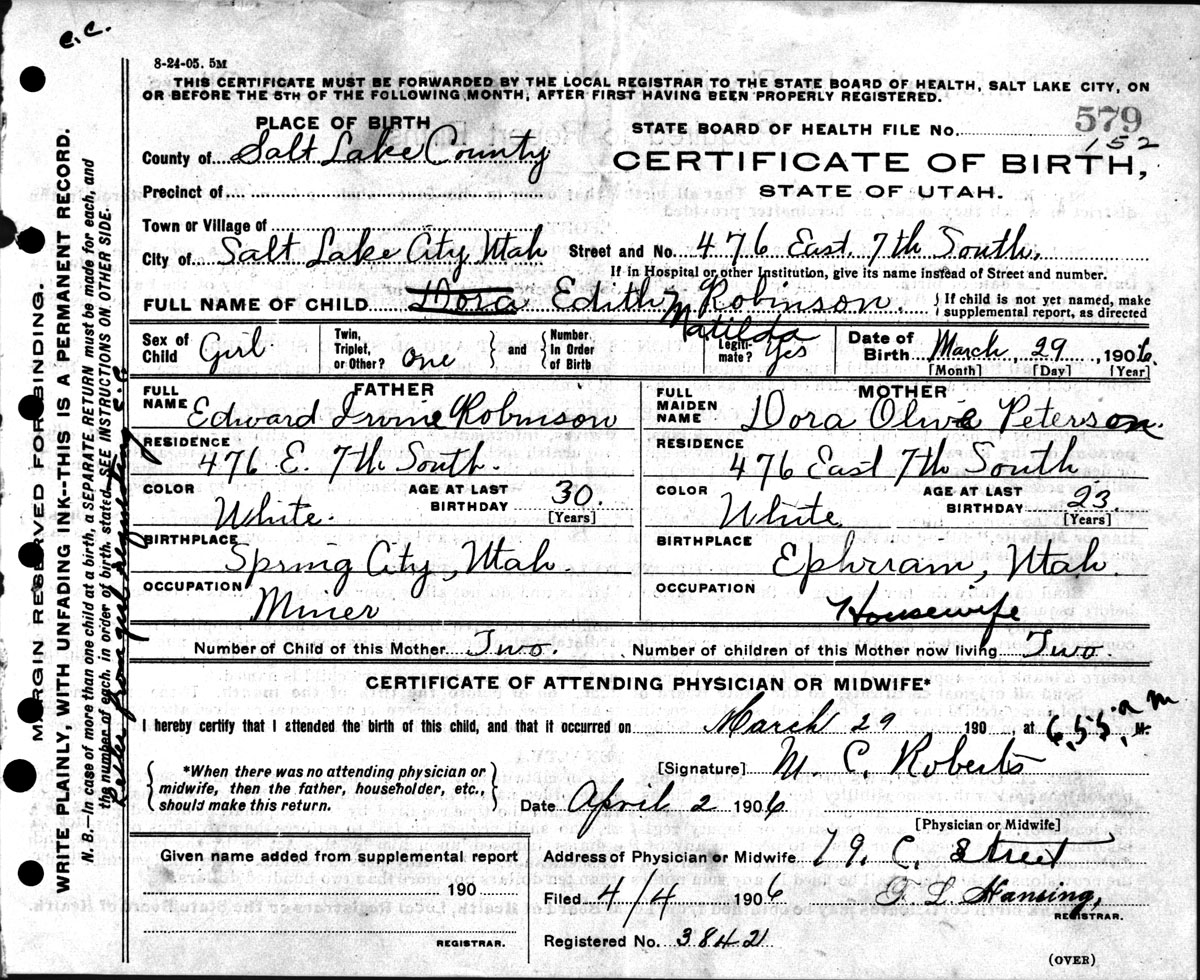 c.c.
8-24-05. 5M
THIS CERTIFICATE MUST BE FORWARDED BY THE LOCAL REGISTRAR TO THE STATE BOARD OF HEALTH, SALT LAKE CITY, ON
OR BEFORE THE 5TH OF THE FOLLOWING MONTH, AFTER FIRST HAVING BEEN PROPERLY REGISTERED.
PLACE OF BIRTH
STATE BOARD OF HEALTH FILE No. 579
152
County of Salt Lake County
CERTIFICATE OF BIRTH,
STATE OF UTAH.
Precinct of
Town or Village of
City of Salt Lake City, Utah Street and No. 476 East. 7th South.
If in Hospital or other Institution, give its name instead of Street and number.
FULL NAME OF CHILD Dora Edith Matilda Robinson. } If child is not yet named, make supplemental report, as directed
Sex of Child Girl Twin, Triplet, or Other? one } and { Number, In Order of Birth Legiti-mate? Yes Date of Birth March, 29, 1906.
[Month] [Day] [Year]
FATHER
FULL NAME Edward Irvine Robinson
MOTHER
FULL MAIDEN NAME Dora Olive Peterson.
RESIDENCE 476 E. 7th South.
RESIDENCE 476 East 7th South
COLOR White. AGE AT LAST BIRTHDAY 30. [Years]
COLOR White AGE AT LAST BIRTHDAY 23. [Years]
BIRTHPLACE Spring City, Utah.
BIRTHPLACE Ephriam, Utah.
OCCUPATION Miner
OCCUPATION Housewife
Number of Child of this Mother Two. Number of children of this Mother now living Two
CERTIFICATE OF ATTENDING PHYSICIAN OR MIDWIFE*
I hereby certify that I attended the birth of this child, and that it occurred on March 29 190 , at 6,55, am M.
{ *When there was no attending physician or midwife, then the father, householder, etc., should make this return. }
[Signature] M. C. Roberts
Date April 2 1906.
[Physician or Midwife]
Given name added from supplemental report
190
REGISTRAR.
Address of Physician or Midwife 79. C. Street
Filed 4/4 1906
REGISTRAR.
Registered No. 3842
(OVER)
MARGIN RESERVED FOR BINDING.
WRITE PLAINLY, WITH UNFADING INK--THIS IS A PERMANENT RECORD.
N. B.—In case of more than one child at a birth, a SEPARATE RETURN must be made for each, and
the number of each, in order of birth, stated. SEE INSTRUCTIONS ON OTHER SIDE.
Letter from girl requesting c.c